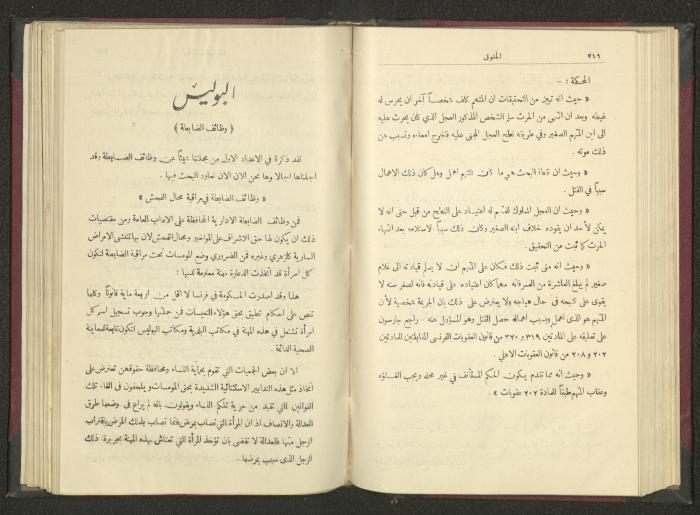 ٧١٩
الحقوق
المحكمة : —
« حيث انه تبين من التحقيقات ان المتهم كلف شخصاً آخر ان يحرس له
غيطه وبعد ان انتهى من الحرث سلم الشخص المذكور العجل الذي كان يحرث عليه
الى ابن المتهم الصغير وفي طريقه نطح العجل المجنى عليه فاخرج امعاءه وتسبب عن
ذلك موته .
« وحيث ان البحث هي ما اذا المتهم اهمل وهل كان ذلك الاهمال
سبباً في القتل .
« وحيث ان العجل المملوك للمتهم له اعتياد على النطح من قبل حتى انه لا
يمكن لأحد ان يقوده خلاف ابنه الصغير وكان ذلك سبباً لاستلامه بعد انتهاء
الحرث كما ثبت من التحقيق .
« وحيث انه متى ثبت ذلك فكان على المتهم ان لا يسلم قيادته الى غلام
صغير لم يبلغ العاشرة من العمر فانه مهما كان اعتياده على قيادته فانه لصغر سنه لا
يقوى على كبحه في حال هياجه ولا يعترض على ذلك بان الجريمة شخصية لأن
المتهم هو الذى اهمل وبسبب اهماله حصل القتل وهو المسؤل عنه . راجع جارسون
على تعليقه على المادتين ٣١٩ و ٣٢٠ من قانون العقوبات الفرنسى المقابلتين للمادتين
٢٠٢ و ٢٠٨ من قانون العقوبات الاهلي .
« وحيث انه مما تقدم يكون الحكم المستأنف في غير محله ويجب الغاؤه
وعقاب المتهم طبقاً للمادة ٢٠٢ عقوبات » .
البوليس
( وظائف الضابطة )
لقد ذكرنا في الاعداد الاول من مجلتنا شيئاً عن وظائف الضابطة وقد
اجلناها اجالا وها نحن الان الان نعاود البحث فيها .
« وظائف الضابطة في مراقبة محال الفحش »
فمن وظائف الضابطة الادارية المحافظة على الاداب العامة ومن مقتضيات
ذلك ان يكون لها حق الاشراف على المواخير ومحال الفحش لان بها تتفشى الامراض
السارية كالزهري وغيره فمن الضروري وضع المومسات تحت مراقبة الضابطة لتكون
كل امرأة قد اتخذت الدعارة مهنة معلومة لديها :
هذا وقد اصدرت الحكومة في فرنسا لا اقل من اربعة ماية قانوناً وكلها
تنص على احكام تطبق بحق هؤلاء التعيسات فمن جملتها وجوب تسجيل اسم كل
امرأة تشتغل في هذه المهنة في مكاتب البلدية ومكاتب البوليس لتكون تابعة لمعاينة
الصحية الدائمة .
الا ان بعض الجمعيات التي تقوم بحماية النساء ومحافظة حقوقهن تعترض على
اتخاذ مثل هذه التدابير الاستثنائية الشديدة بحق المومسات ويلحفون فى الغاء تلك
القوانين التي تقيد من حرية تلكم النساء ويقولون بانه لم يراع في وضعها طرق
العدالة والانصاف اذ ان المرأة التي تصاب بمرض فانما تصاب بذلك المرض باقتراب
الرجل منها فالعدالة لا تقضى بان تؤخذ المرأة التي تعتاش بهذه المهنة بجريرة ذلك
الرجل الذى سبب بمرضها .